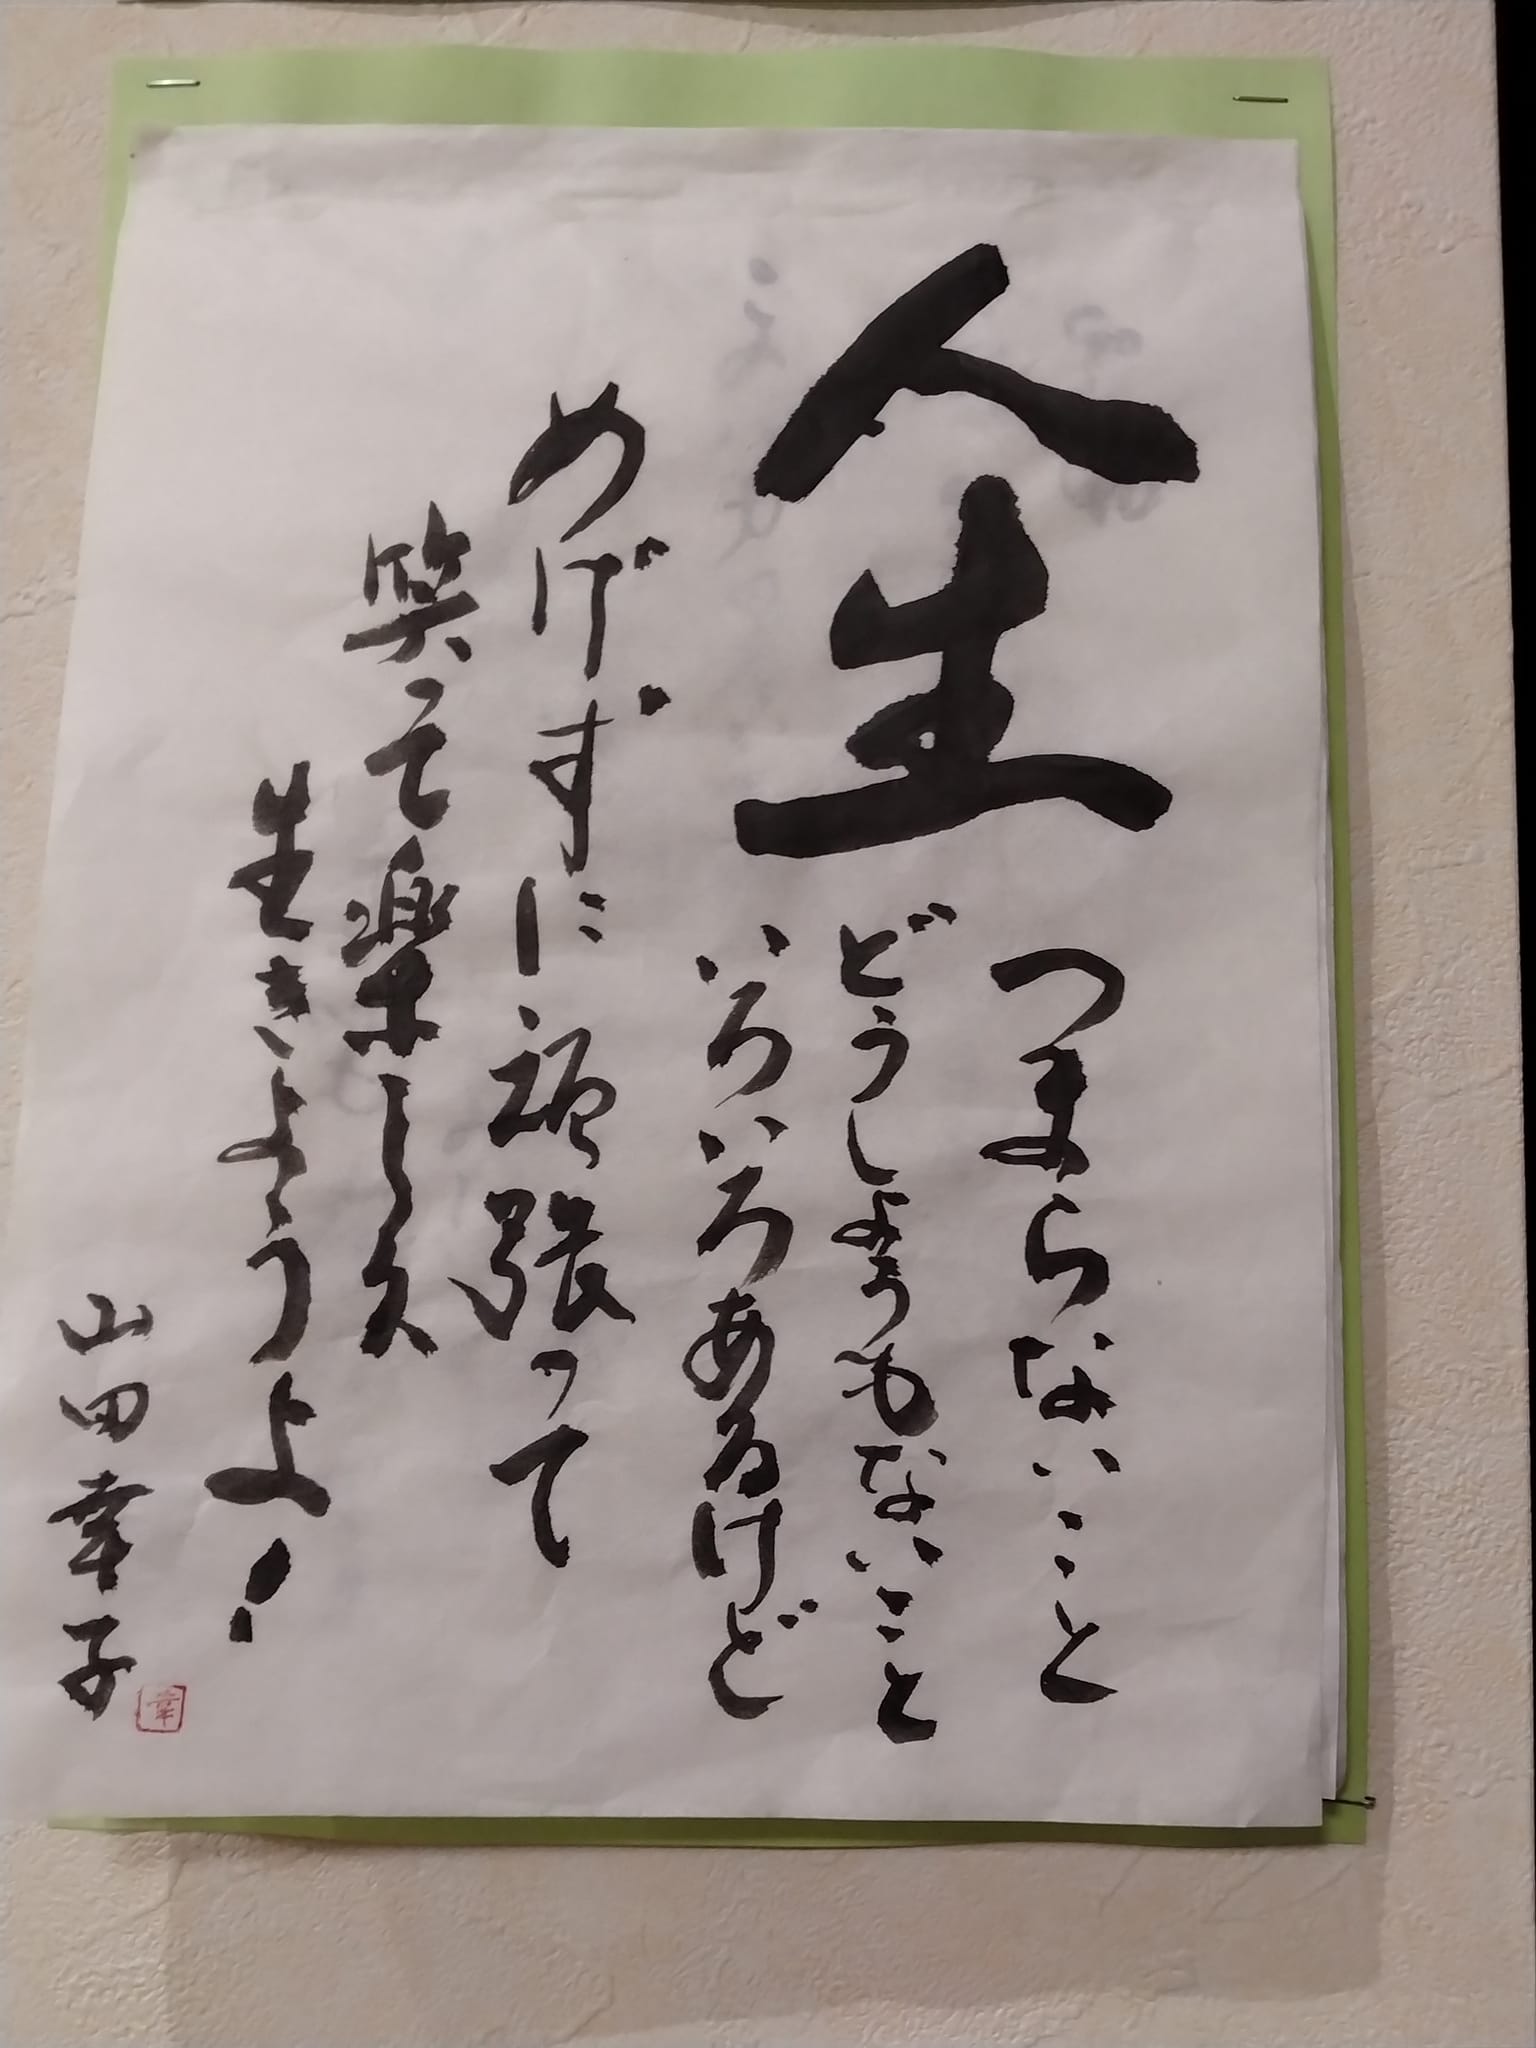 人生
つまらないこと
どうしょうもないこと
いろいろあるけど
めげずに頑張って
笑って楽しく
生きようよ!
山田幸子
幸